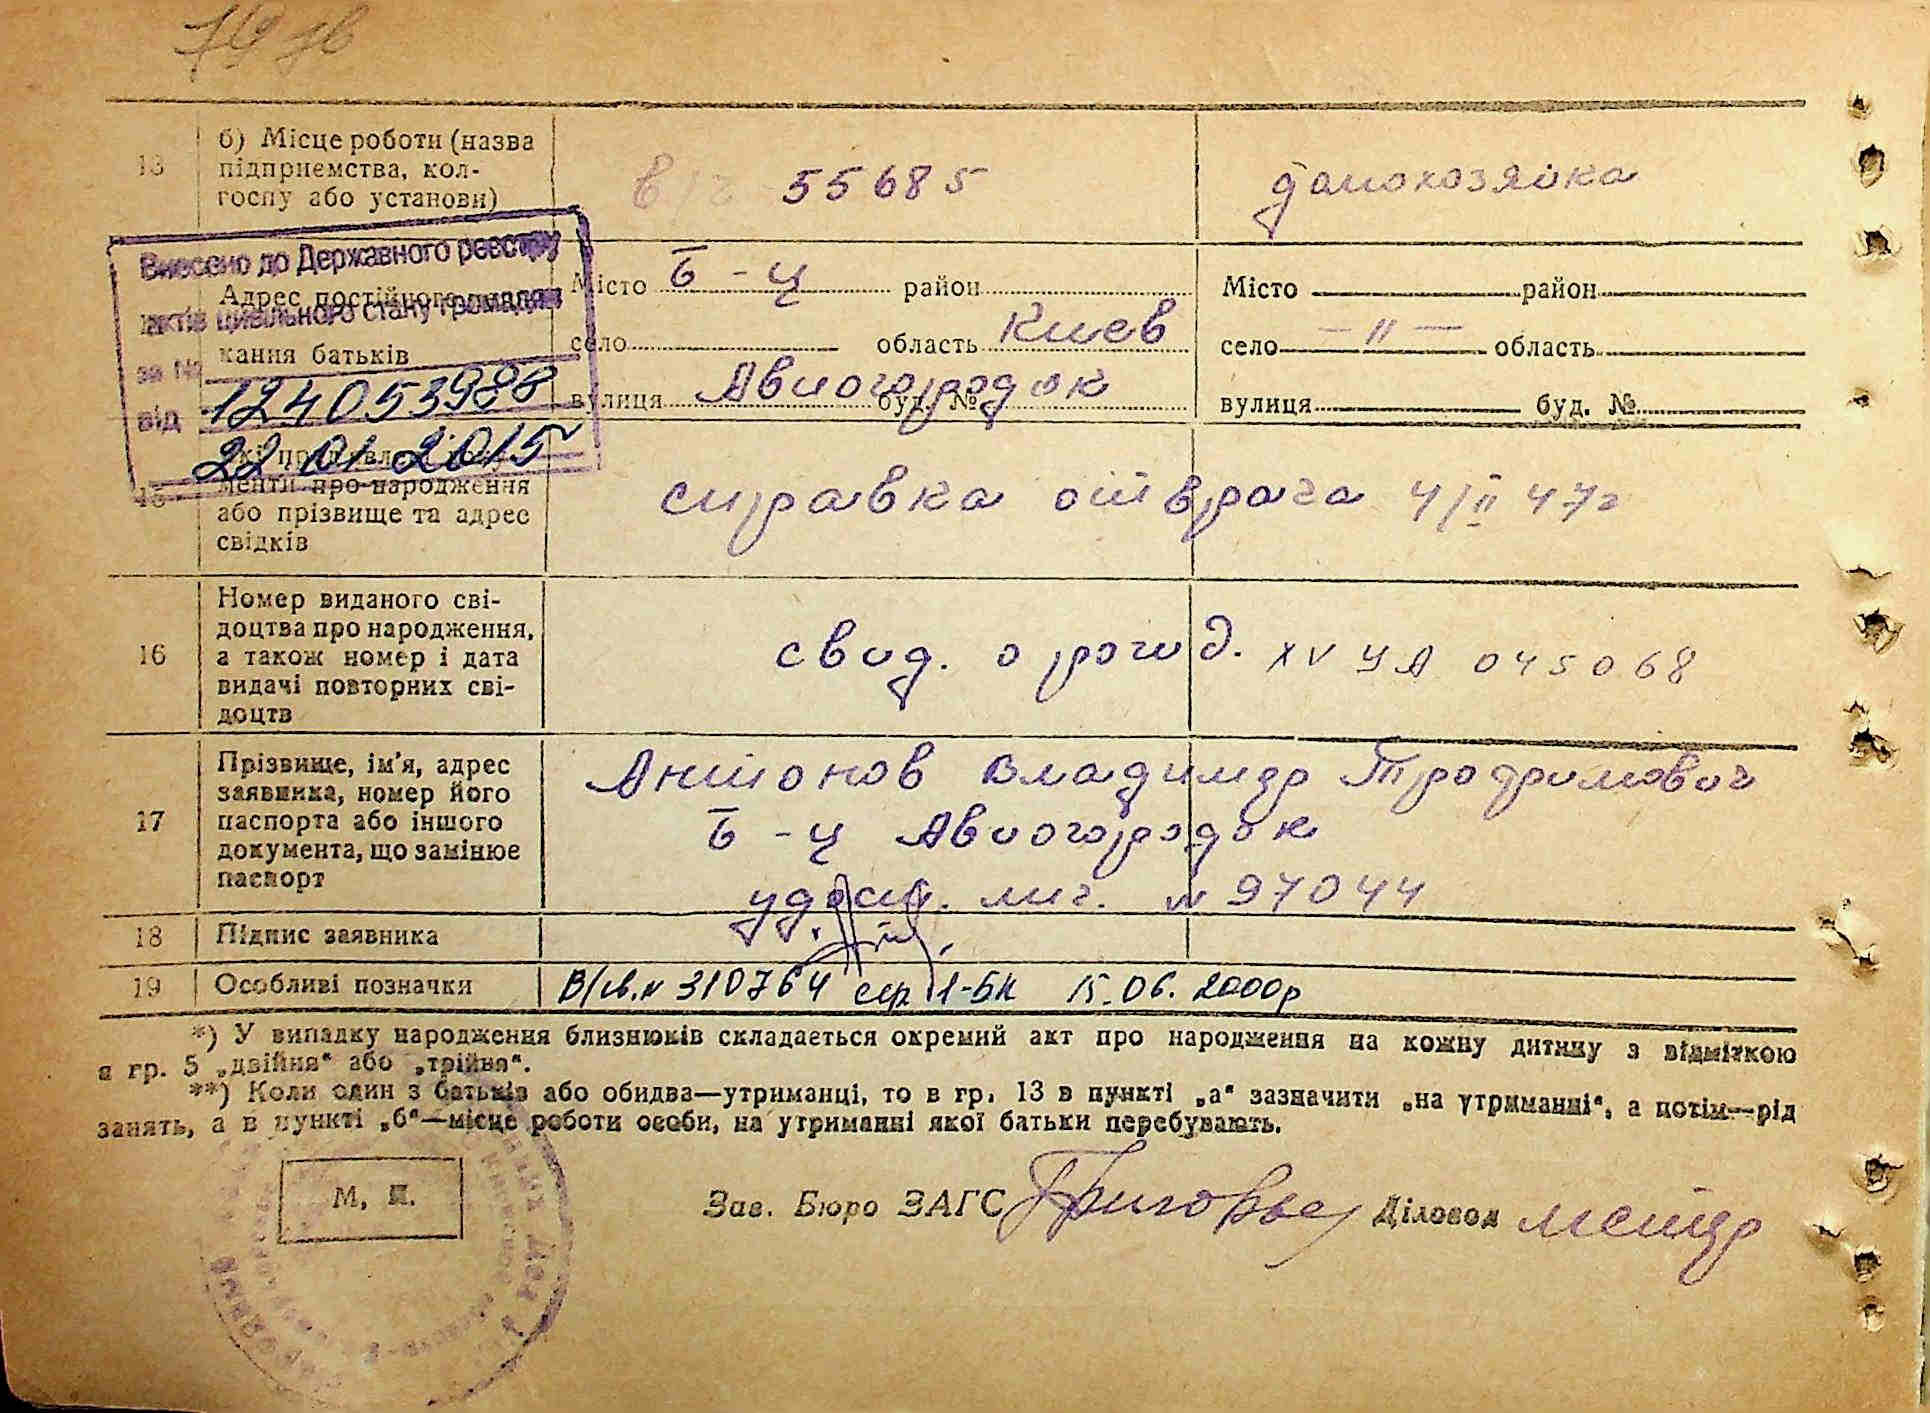 79 зв
13
б) Місце роботи (назва
підприємства, кол-
госпу або установи)
в/ч 55685
домохозяйка
Внесено до Державного реєстру
актів цивільного стану громадян
за №
124053988
від
22.01.2015
Адрес постійного
кання батьків
Місто Б-Ц район
село область Киев
вулиця Авиогородок буд. №
Місто район
село — II — область
вулиця буд. №
15
менти про народження
або прізвище та адрес
свідків
справка от врача 4/II 47г
16
Номер виданого сві-
доцтва про народження,
а також номер і дата
видачі повторних сві-
доцтв
свид. о рожд. XV УА 045068
17
Прізвище, ім'я, адрес
заявника, номер його
паспорта або іншого
документа, що замінює
паспорт
Антонов Владимир Трофимович
Б-Ц Авиогородок
удост. лич. № 97044
18
Підпис заявника
19
Особливі позначки
В/св.№ 310764 сер 1-БК 15.06.2000р
*) У випадку народження близнюків складається окремий акт про народження на кожну дитину з відміткою
в гр. 5 „двійня“ або „трійня“.
**) Коли один з батьків або обидва—утриманці, то в гр. 13 в пункті „а“ зазначити „на утриманні“, а потім—рід
занять, а в пункті „б“—місце роботи особи, на утриманні якої батьки перебувають.
М. П.
Зав. Бюро ЗАГС Григорьев Діловод